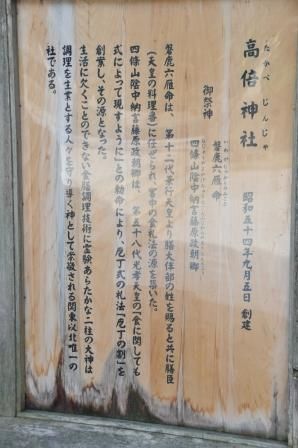 たかべ じんじゃ
高倍神社
昭和五十四年九月五日 創建
御祭神
磐鹿六雁命
四條山陰中納言藤原政朝卿
磐鹿六雁命は、第十二代景行天皇より膳大伴部の姓を賜ると共に膳臣
(天皇の料理番)に任ぜられ、宮中の食礼法の源を築いた。
四條山陰中納言藤原政朝卿は、第五十八代光孝天皇の「食に関しても
式によって現すように」との勅命により、庖丁式の礼法「庖丁の割」を
創案し、その源となった。
生活に欠くことのできない食膳調理技術に霊験あらたかな二柱の大神は
調理を生業とする人々を守り導く神として崇敬される関東以北唯一の
社である。